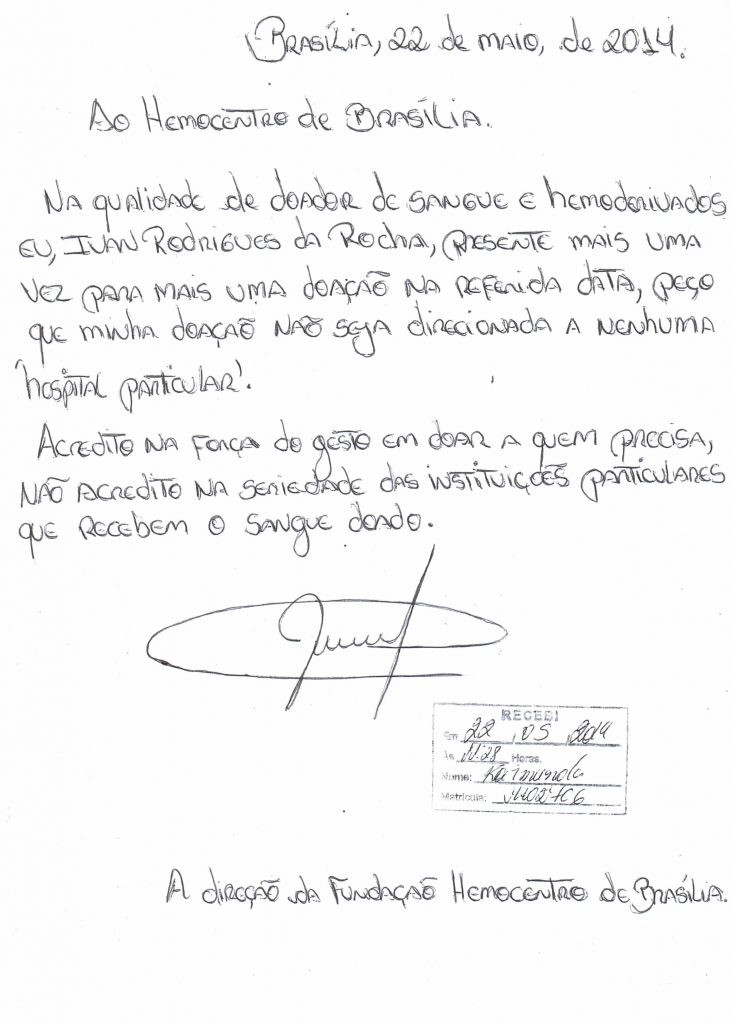 Brasília, 22 de maio, de 2014.
Ao Hemocentro de Brasília.
Na qualidade de doador de sangue e hemoderivados
eu, Ivan Rodrigues da Rocha, presente mais uma
vez para mais uma doação na referida data, peço
que minha doação não seja direcionada a nenhuma
'hospital particular'.
Acredito na força do gesto em doar a quem precisa,
não acredito na seriedade das instituições particulares
que recebem o sangue doado.
RECEBI
Em 22, 05, 2014
Às 11:28 Horas.
Nome: Raimunda
Matrícula:
A direção da Fundação Hemocentro de Brasília.